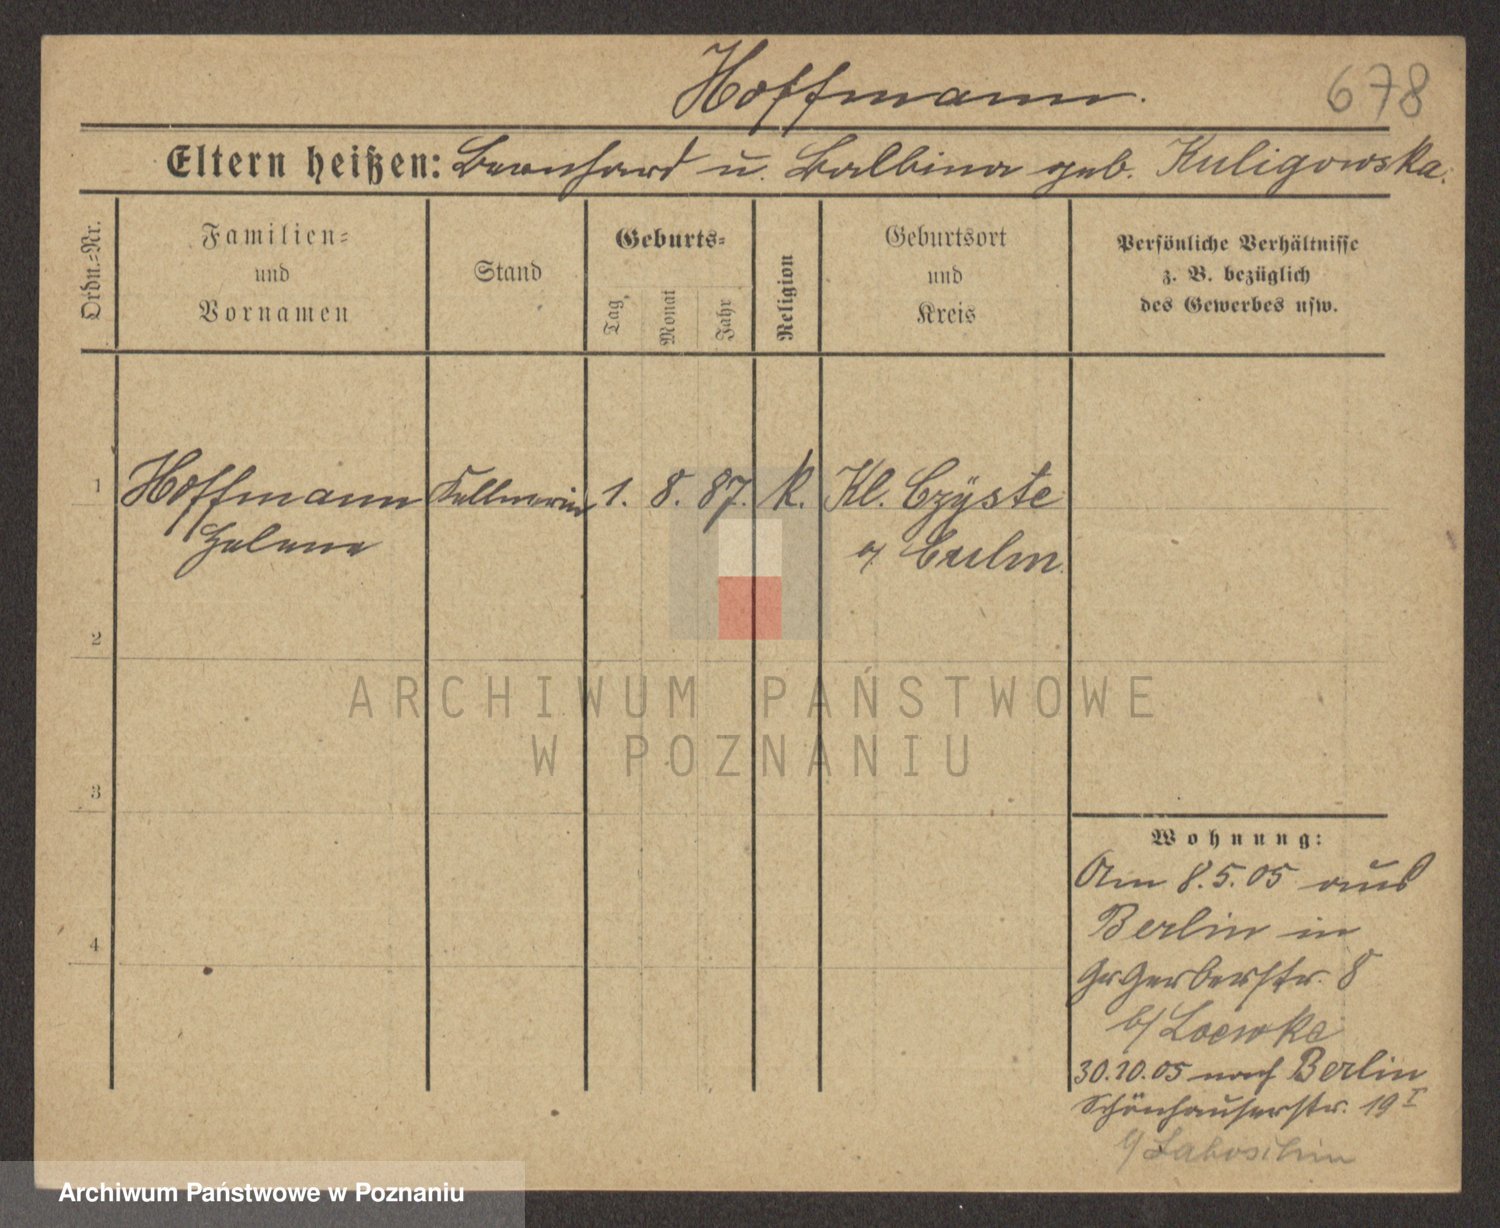 Hoffmann.
678
Eltern heißen: Bernhard u. Balbina geb. Kuligowska.
Ordn.-Nr.
Familien-
und
Vornamen
Stand
Geburts-
Tag
Monat
Jahr
Religion
Geburtsort
und
Kreis
Persönliche Verhältnisse
z. B. bezüglich
des Gewerbes usw.
1 Hoffmann Kellnerin 1. 8. 87. k. Kl. Czÿste
Helene Culm
2
ARCHIWUM PAŃSTWOWE
W POZNANIU
3
Wohnung:
Am 8.5.05 aus
Berlin in
4
Gr Gerberstr. 8
b/
30.10.05 nach Berlin
Schönhauserstr. 19 I
Archiwum Państwowe w Poznaniu